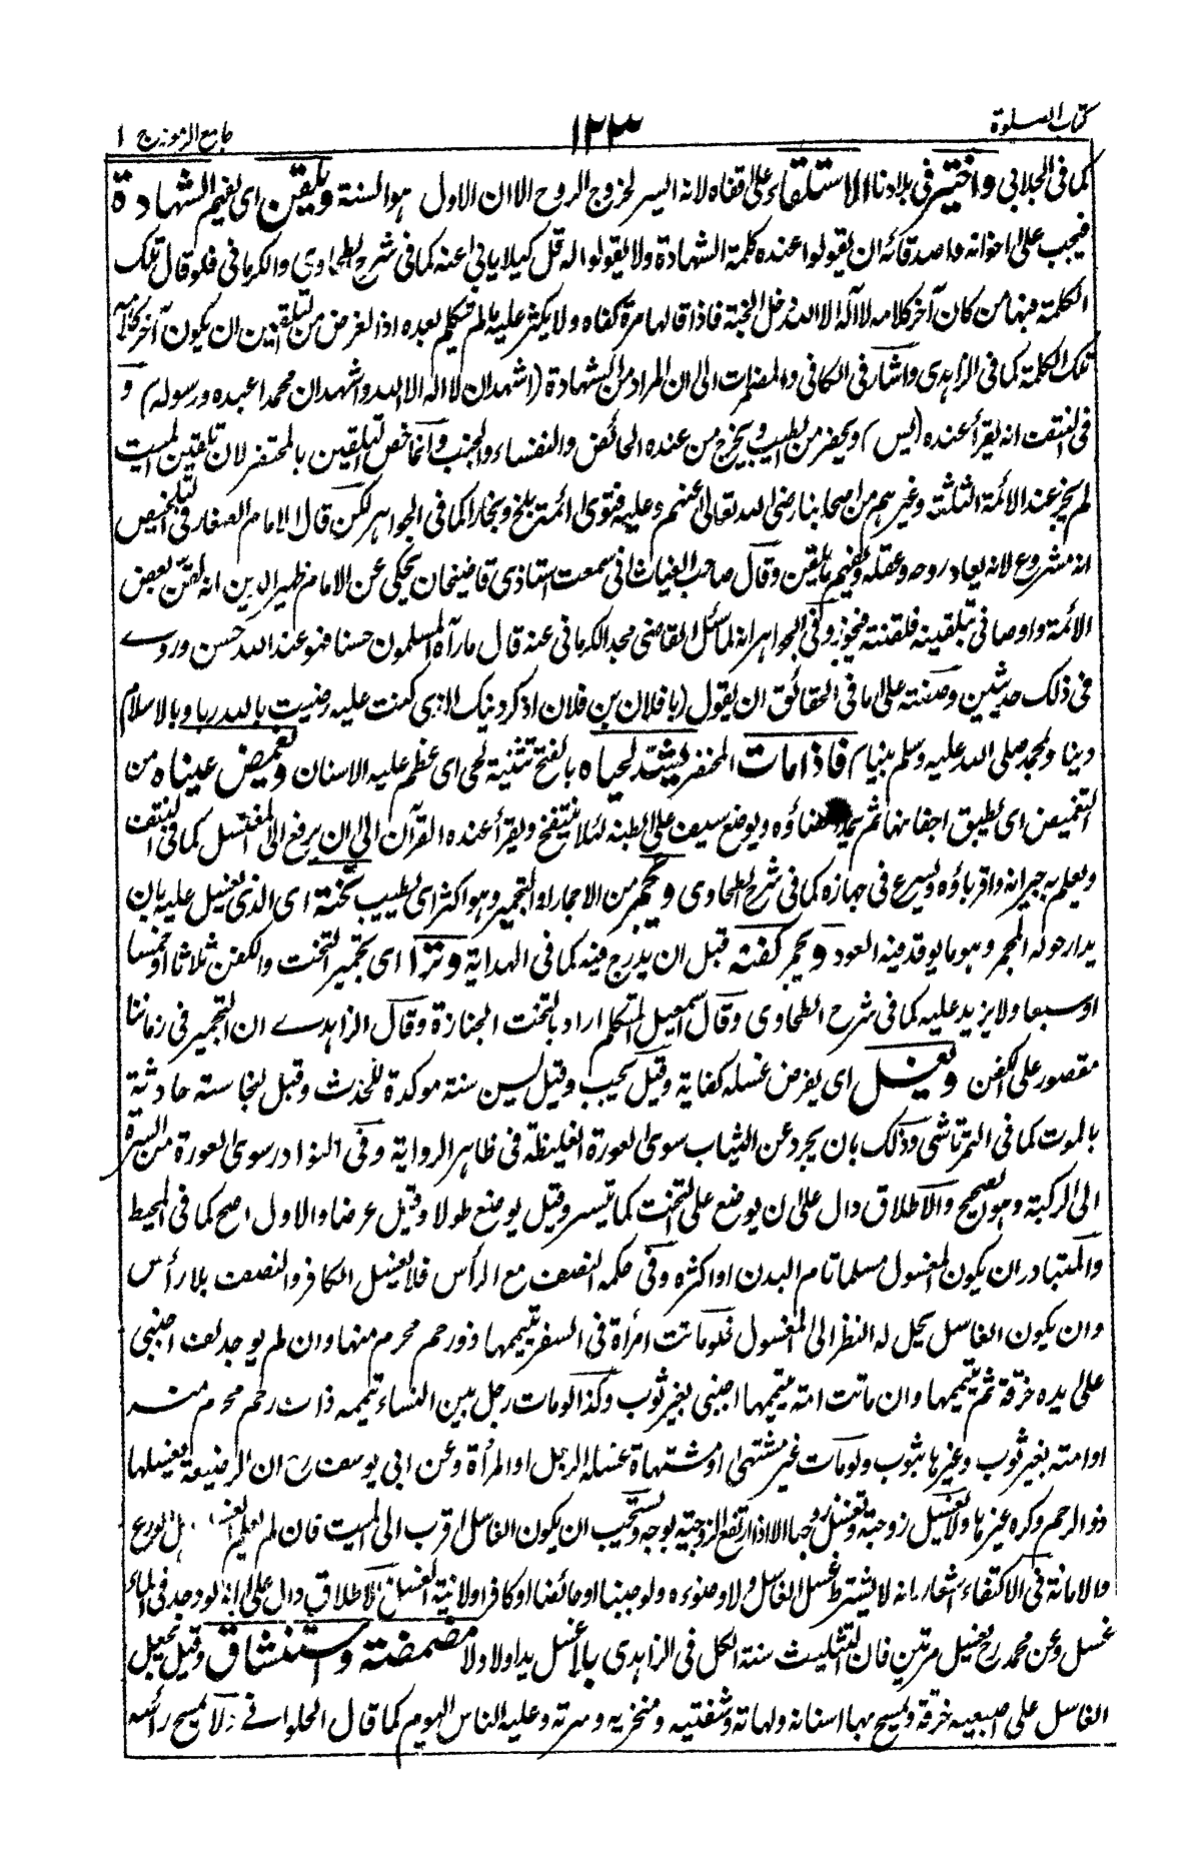 كتاب الصلوة
١٢٣
جامع الرموز ج ١
كما فى الجلابى واختير فى بلادنا الاستلقاء على قفاه لانه ايسر لخروج الروح الا ان الاول هو السنة ويلقن اى يفهم الشهادة
فيجب على اخوانه واصدقائه ان يقولوا عنده كلمة الشهادة ولا يقولوا له قل كيلا يابى عنه كما فى شرح الطحاوى والكرمانى فلو قال تلك
الكلمة فبها من كان آخر كلامه لا اله الا الله دخل الجنة فاذا قالها مرة كفاه ولا يكثر عليه ما لم يتكلم بعده اذ الغرض من التلقين ان يكون آخر كلامه
تلك الكلمة كما فى الزاهدى واشار فى الكافى والمضمرات الى ان المراد من الشهادة (اشهد ان لا اله الا الله واشهد ان محمدا عبده ورسوله) و
فى النتف انه يقرأ عنده (يس) ويحضر من الطيب ويخرج من عنده الحائض والنفساء والجنب وانما خص التلقين بالمحتضر لان تلقين الميت
لم يجز عند الائمة الثلثة وغيرهم من اصحابنا رضى الله تعالى عنهم وعليه فتوى ائمة بلخ وبخارا كما فى الجواهر لكن قال الامام الصفار فى التلخيص
انه مشروع لانه يعاد روحه وعقله ويفهم ما يلقن وقال صاحب الغياث انى سمعت استاذى قاضيخان يحكى عن الامام ظهير الدين انه لقن بعض
الائمة واوصانى بتلقينه فلقنته فيجوز وفى الجواهر انه لما سئل القاضى مجد الكرمانى عنه قال ما رآه المسلمون حسنا فهو عند الله حسن وروى
فى ذلك حديثين وصفته على ما فى الحقائق ان يقول (يا فلان بن فلان اذكر دينك الذى كنت عليه رضيت بالله ربا وبالاسلام
دينا وبمحمد صلى الله عليه وسلم نبيا) فاذا مات المحتضر يشد لحياه بالفتح تثنية لحى اى عظم عليه الاسنان ويغمض عيناه من
التغميض اى يطبق اجفانهما ثم يمد اعضاؤه ويوضع سيف على بطنه لئلا ينتفخ ويقرأ عنده القرآن الى ان يرفع الى المغتسل كما فى النتف
ويعلم به جيرانه واقرباؤه ويسرع فى جهازه كما فى شرح الطحاوى ويجمر من الاجمار او التجمير وهو اكثر اى يطيب تخته اى الذى يغسل عليه بان
يدار حوله المجمر وهو ما يوقد فيه العود ويجمر كفنه قبل ان يدرج فيه كما فى الهداية وترا اى تجمير التخت والكفن ثلاثا او خمسا
او سبعا ولا يزيد عليه كما فى شرح الطحاوى وقال اسمعيل المتكلم اراد بالتخت الجنازة وقال الزاهدى ان التجمير فى زماننا
مقصور على الكفن ويغسل اى يفرض غسله كفاية وقيل يجب وقيل يسن سنة موكدة للحدث وقيل لنجاسة حادثة
بالموت كما فى التمرتاشى وذلك بان يجرد عن الثياب سوى العورة الغليظة فى ظاهر الرواية وفى النوادر سوى العورة من السرة
الى الركبة وهو الصحيح والاطلاق دال على ان يوضع على التخت كما تيسر وقيل يوضع طولا وقيل عرضا والاول اصح كما فى المحيط
والمتبادر ان يكون المغسول مسلما تام البدن او اكثره وفى حكمه النصف مع الرأس فلا يغسل الكافر والنصف بلا رأس
وان يكون الغاسل يحل له النظر الى المغسول فلو ماتت امرأة فى السفر يتيممها ذو رحم محرم منها وان لم يوجد لف اجنبى
على يده خرقة ثم يتيممها وان ماتت امة يتيممها اجنبى بغير ثوب وكذا لو مات رجل بين النساء تيممه ذات رحم محرم منه
او امته بغير ثوب وغيرها بثوب ولو مات غير مشتهى او مشتهاة غسله الرجل او المرأة وعن ابى يوسف رح ان الرضيعة يغسلها
ذو الرحم وكره غيرها ولا يغسل زوجته وتغسل زوجها الا اذا ارتفع الزوجية بوجه ويستحب ان يكون الغاسل اقرب الى الميت فان لم يعلم الغسل اهل الورع
والامانة فى الاكتفاء اشعار بانه لا يشترط غسل الغاسل ولا وضوءه ولو جنبا او حائضا او كافرا ولا نية الغسل الاطلاق دال على انه لو وجد فى الماء
غسل وعن محمد رح يغسل مرتين فان التثليث سنة الكل فى الزاهدى بلا غسل يد اولا ولا مضمضة واستنشاق وقيل يجعل
الغاسل على اصبعيه خرقة ويمسح بها اسنانه ولهاته وشفتيه ومنخريه وسرته وعليه الناس اليوم كما قال الحلوانى ولا يمسح رأسه